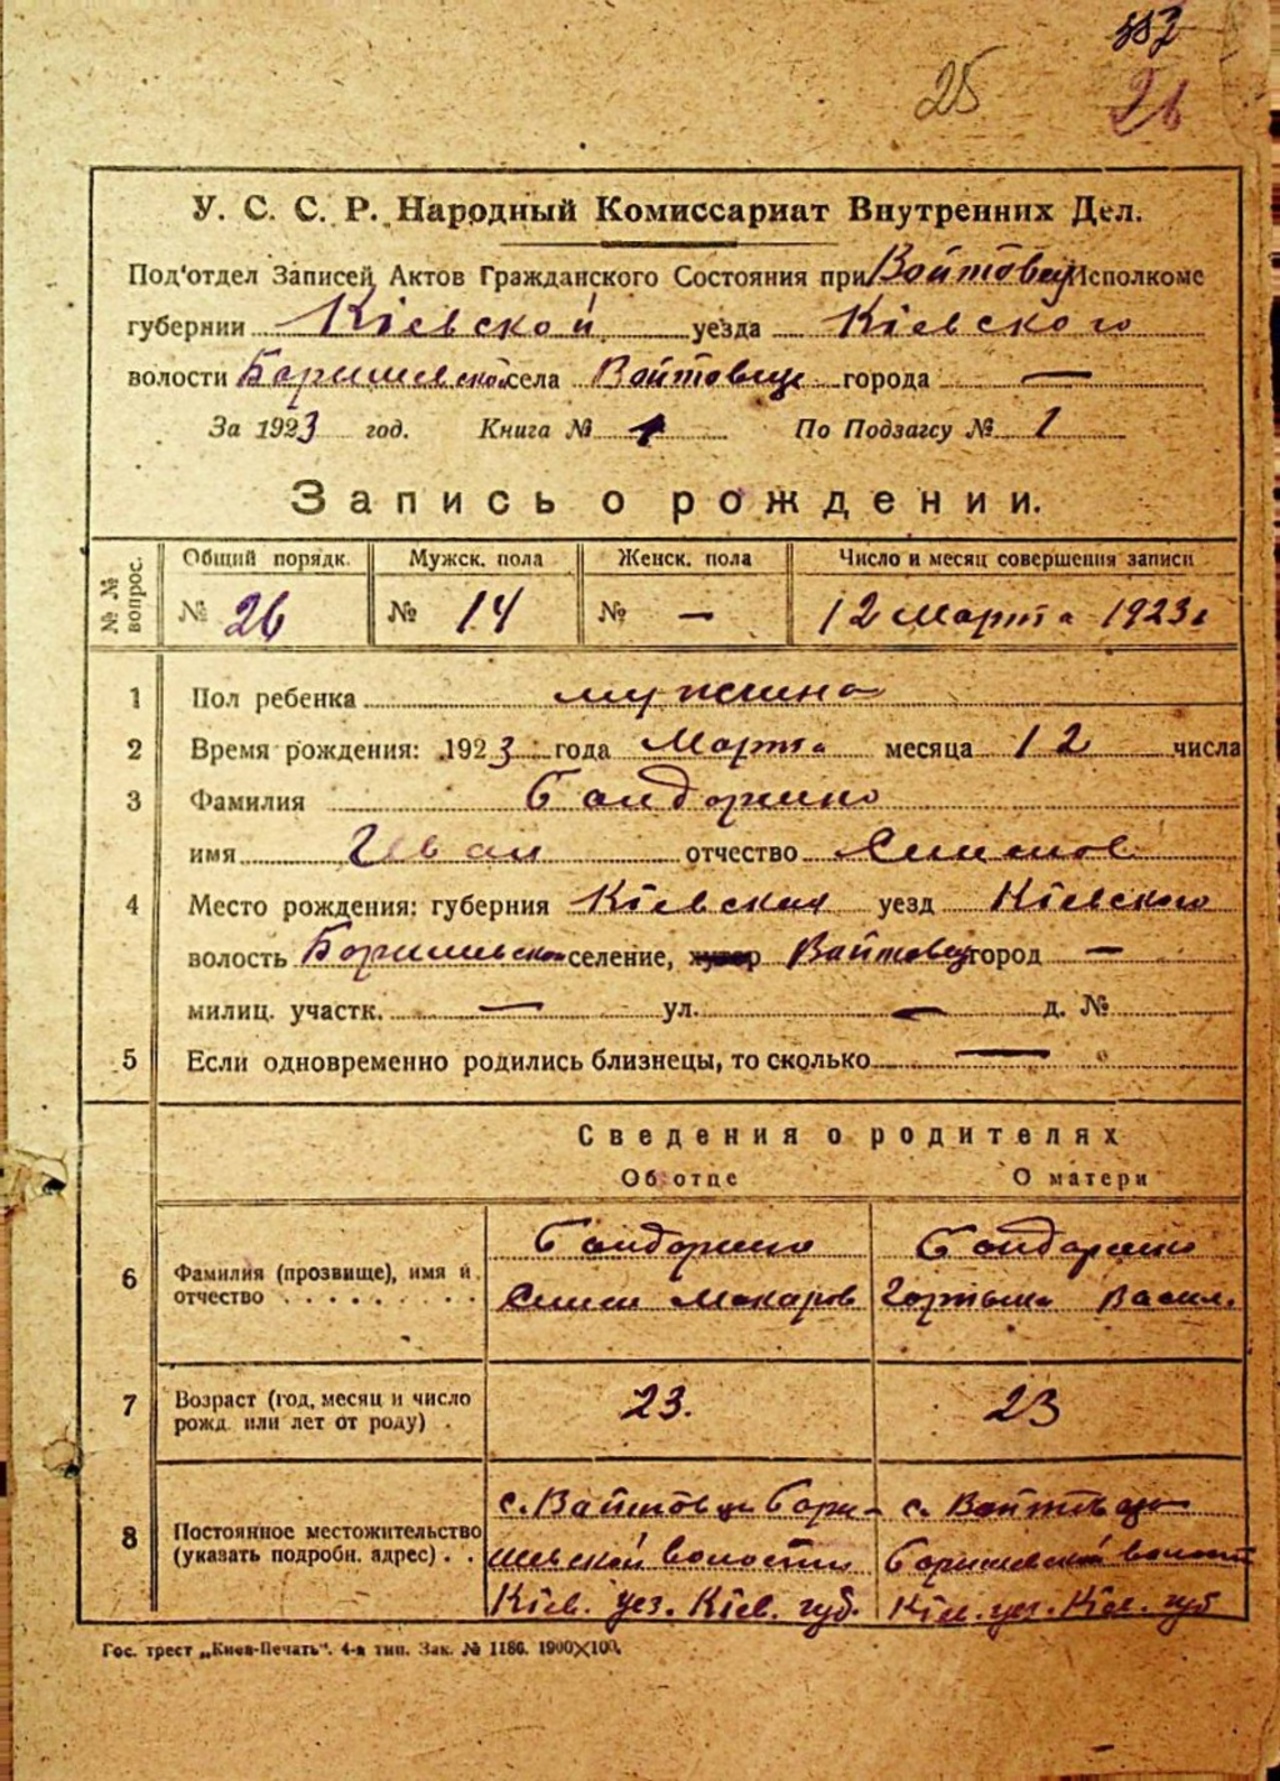 25
26
У. С. С. Р. Народный Комиссариат Внутренних Дел.
Под'отдел Записей Актов Гражданского Состояния при Войтовец Исполкоме
губернии Кіевской уезда Кіевского
волости Боришевской села Войтовце города —
За 1923 год. Книга № 1 По Подзагсу № 1
Запись о рождении.
№ № вопрос.
Общий порядк. Мужск. пола Женск. пола Число и месяц совершения записи
№ 26 № 14 № — 12 Марта 1923г
1 Пол ребенка
2 Время рождения: 1923 года Марта месяца 12 числа
3 Фамилия
имя Иван отчество
4 Место рождения: губерния Кіевская уезд Кіевского
волость Боришевской селение, хутор Войтовец город —
милиц. участк. — ул. — д. №
5 Если одновременно родились близнецы, то сколько —
Сведения о родителях
Об отце О матери
6 Фамилия (прозвище), имя и
отчество . . . . . . . . . Макаров Васил.
7 Возраст (год, месяц и число
рожд. или лет от роду) . 23. 23
8 Постоянное местожительство
(указать подробн. адрес) . .
с. Войтовце Бори-
шевской волости
Кіев. уез. Кіев. губ.
с. Войтовце
Боришевской волости
Кіев. уез. Кіев. губ
Гос. трест „Киев-Печать“. 4-я тип. Зак. № 1186. 1900×100.